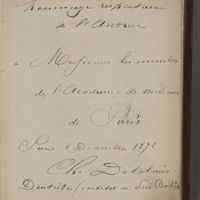 hommage respectueux
de l'Auteur
a Messieurs les membres
de l'Academie de médecine
de Paris
Paris 8 Décembre 1892
Ch.
Dentiste